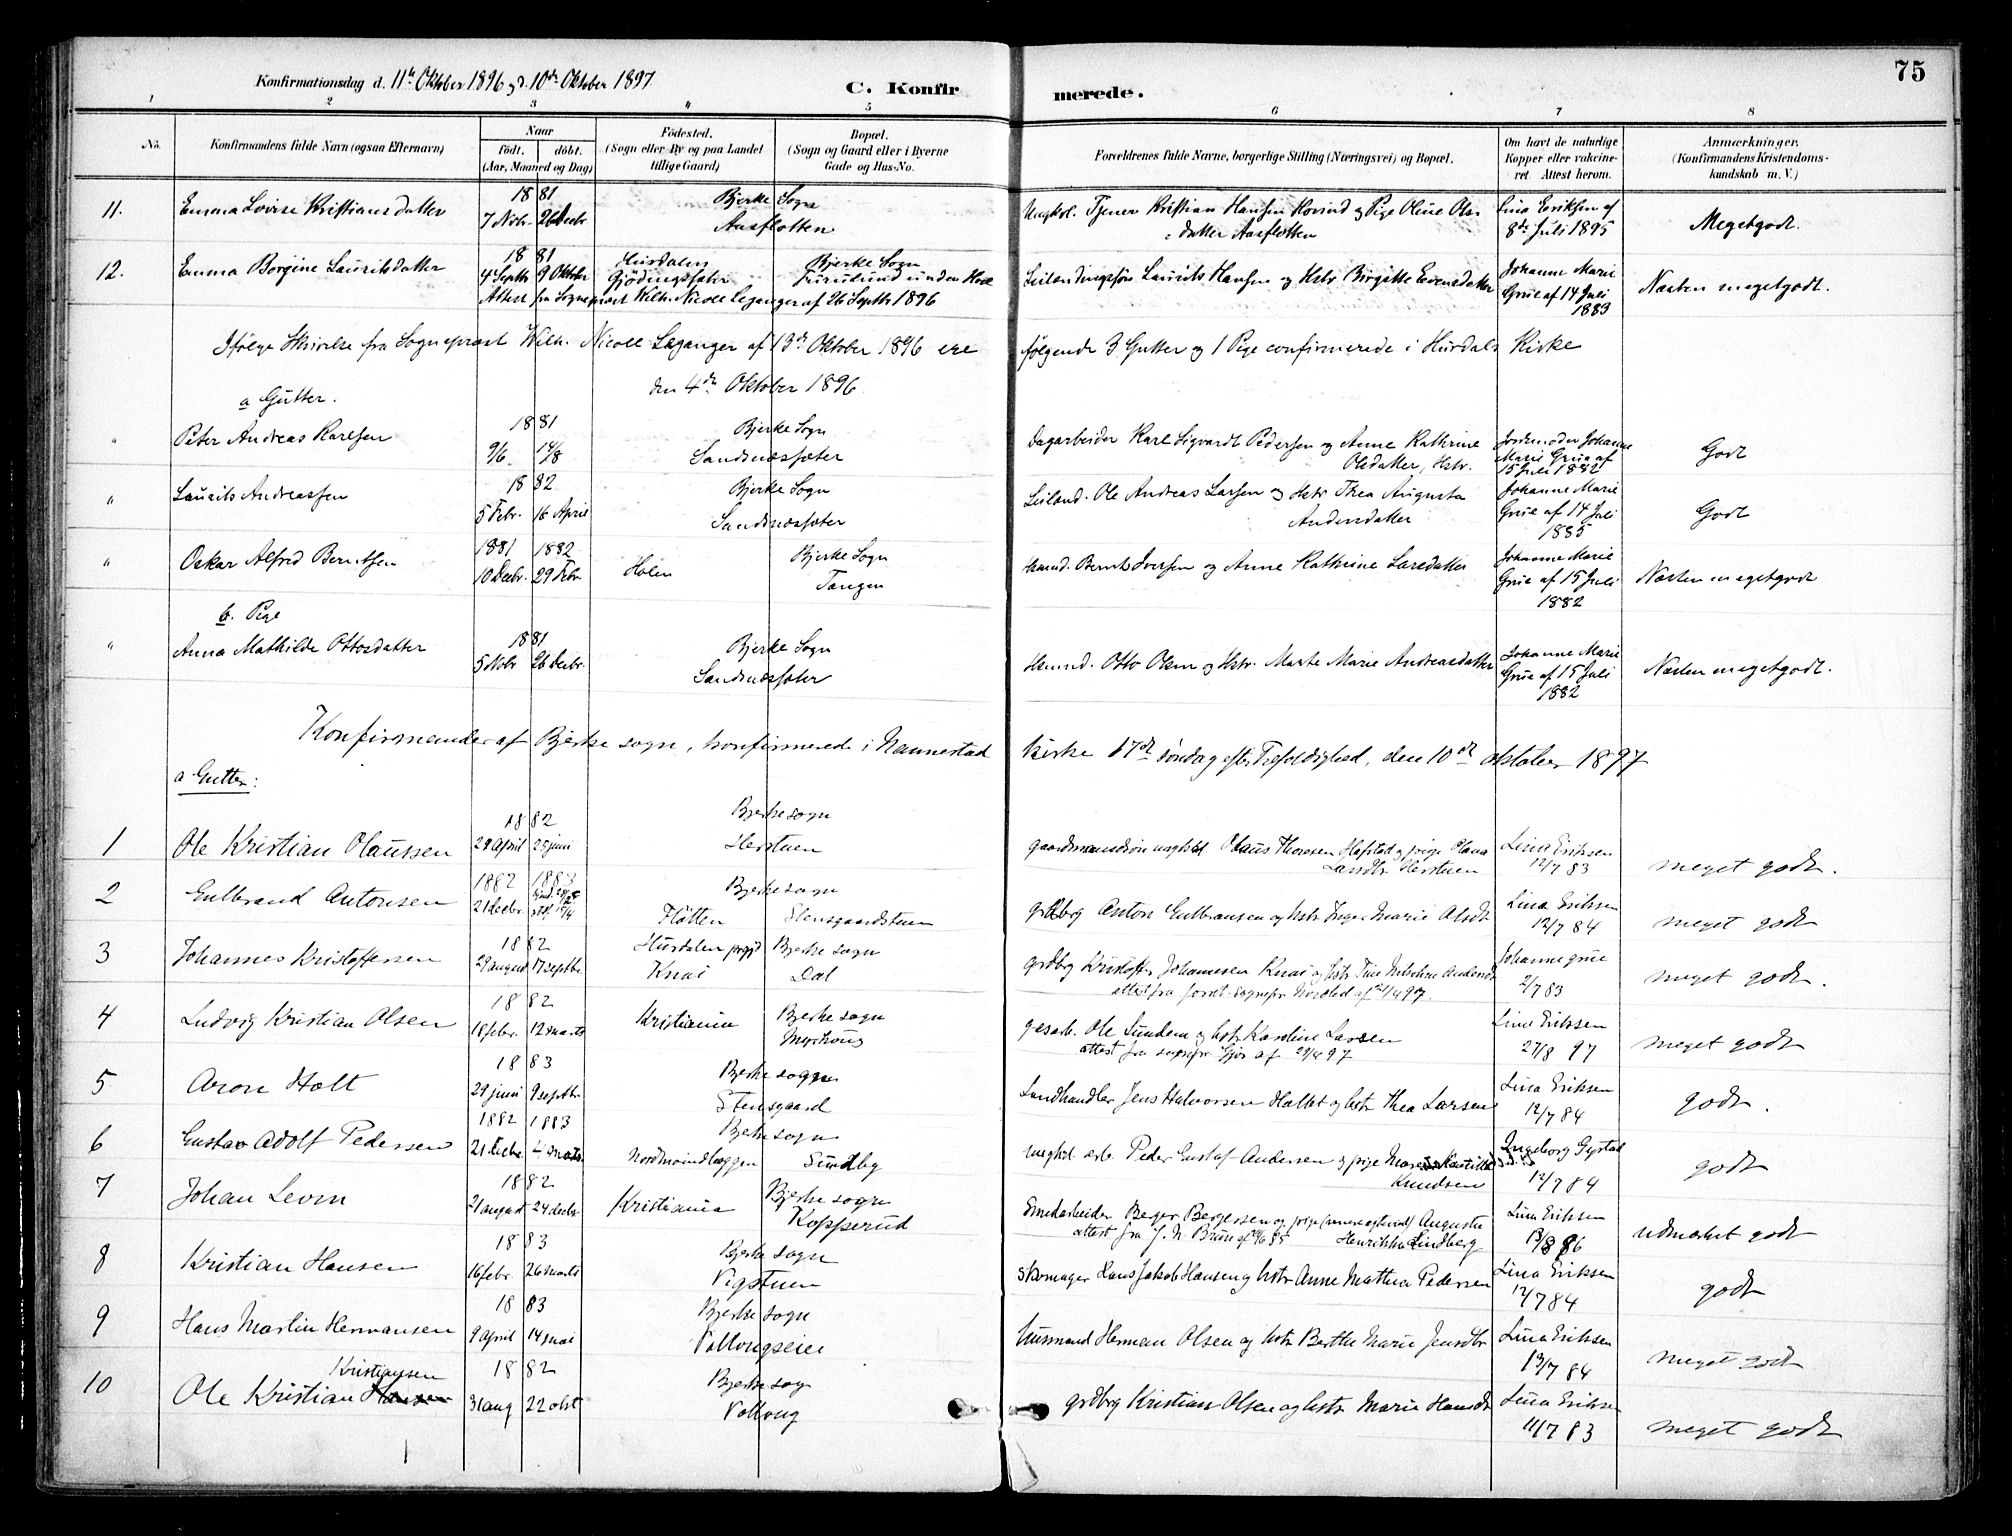 75
Konfirmationsdag d. 11te Oktober 1896 og d. 10de Oktober 1897
C. Konfirmerede.
1 2 3 4 5 6 7 8
No. Konfirmandens fulde Navn (ogsaa Efternavn) Naar født. døbt. (Aar, Maaned og Dag) Fødested. (Sogn eller By og paa Landet tillige Gaard) Bopæl. (Sogn og Gaard eller i Byerne Gade og Hus-No. Forældrenes fulde Navne, borgerlige Stilling (Næringsvei) og Bopæl. Om havt de naturlige Kopper eller vakcineret. Attest herom. Anmærkninger. (Konfirmandens Kristendomskundskab m. V.)
11. Emma Lovise Kristiansdatter 1881 7 Novbr. 26 Decbr Bjerke Sogn Aasflotten Ungkol. Tjener Kristian Hansen Rovind og Pige Oline Olsdatter Aasflotten Lina Eriksen af 8de Juli 1895 Megetgodt.
12. Emma Borgine Lauritsdatter 1881 4 Septbr 9 Oktober Hurdalen Gjødingsæter Bjerke Sogn Furulund under Leilændingsføn Laurits Hansen og Hstr. Birgitte Evensdatter Johanne Marie Grue af 14 Juli 1883 Næsten megetgodt.
Attest fra Sogneprest Wilh. Nicoll Leganger af 26 Septbr 1896
Ifølge Skrivelse fra Sogneprest Wilh. Nicoll Leganger af 13de Oktober 1896 ere følgende 3 Gutter og 1 Pige confirmerede i Hurdals Kirke
den 4de Oktober 1896.
a Gutter.
" Peter Andreas Karlsen 1881 9/6 14/8 Bjerke Sogn Sandnæssæter Dagarbeider Karl Sigvardt Pedersen og Anne Kathrine Olsdatter, Hstr. Jordemoder Johanne Marie Grue af 15 Juli 1882 Godt
" Laurits Andreassen 1882 5 Febr. 16 April Bjerke Sogn Sandnæssæter Leilænd. Ole Andreas Larsen og Hstr Thea Augusta Andersdatter Johanne Marie Grue af 14 Juli 1885 Godt
" Oskar Alfred Berntsen 1881 1882 10 Decbr. 29 Febr. Holen Bjerke Sogn Tangen Husmd. Bernt Iversen og Anne Kathrine Larsdatter Johanne Marie Grue af 15 Juli 1882 Næsten megetgodt
b. Pige
" Anna Mathilde Ottosdatter 1881 5 Novbr 26 Decbr. Bjerke Sogn Sandnæssæter Husmd. Otto Olsen og Hstr. Marte Marie Andreasdatter Johanne Marie Grue af 15 Juli 1882 Næsten megetgodt.
Konfirmander af Bjerke sogn, konfirmerede i Nannestad kirke 17de søndag efter Trefoldighed, den 10de oktober 1897
a Gutter:
1 Ole Kristian Olaussen 1882 29 april 25 juni Bjerke sogn Herstuen gaardmandssøn ungkal Olaus Thoresen Hafstad og pige Olava Larsdtr Herstuen Lina Eriksen 12/7 83 meget godt.
2 Gulbrand Antonsen 1882 1883 21 decbr. Flåtten Bjerke sogn Stensgaardstuen grdbrg Anton Gulbransen og hstr Inger Marie Olsdtr Lina Eriksen 12/7 84 meget godt
3 Johannes Kristoffersen 1882 29 august 17 septbr. Hurdalen prgjd Knai Bjerke sogn Dal grdbrg Kristoffer Johannesen Knai og hstr Andersdtr Johanne grue 2/7 83 meget godt.
4 Ludvig Kristian Olsen 1882 18 febr. 12 marts Kristiania Bjerke sogn gasarb. Ole Sundem og hstr Karoline Larsen attest fra sognepr Gjør af 29/4 97 Lina Eriksen 27/8 97 meget godt
5 Aron Holt 1883 29 juni 9 septbr. Bjerke sogn Stensgaard Landhandler Jens Halvorsen Holtet og hstr Thea Larsen Lina Eriksen 12/7 84 godt.
6 Gustav Adolf Pedersen 1882 1883 21 decbr 4 marts Nordmoindlæggen Bjerke sogn Sundby ungkal arb Peder Gustaf Andersen og pige Knudsen Ingeborg Gystad 12/7 84 godt
7 Johan Levin 1882 21 august 24 decbr Kristiania Bjerke sogn Kopperud Smedarbeider Berger Bergersen og pige Auguste Henrikke Lindberg attest fra J. N. Brun Lina Eriksen 13/8 86 udmerket godt
8 Kristian Hansen 1883 16 febr. 26 marts Bjerke sogn Vigstuen Skomager Hans Jakob Hansen og hstr Anne Mathea Pedersen Lina Eriksen 12/7 84 godt
9 Hans Martin Hermansen 1883 9 april 14 mai Bjerke sogn Vollaugseiei husmand Herman Olsen og hstr Berthe Marie Jensdtr Lina Eriksen 13/7 84 meget godt
10 Ole Kristian Kristiansen 1882 31 aug 22 okt Bjerke sogn Vollaug grdbrg Kristian Olsen og hstr Marie Hansdtr Lina Eriksen 11/7 83 meget godt